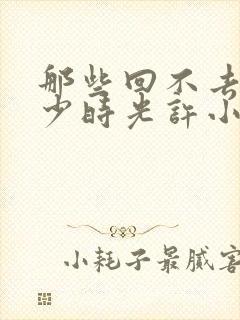 那些回不去
少時光許小
小耗子最膩害